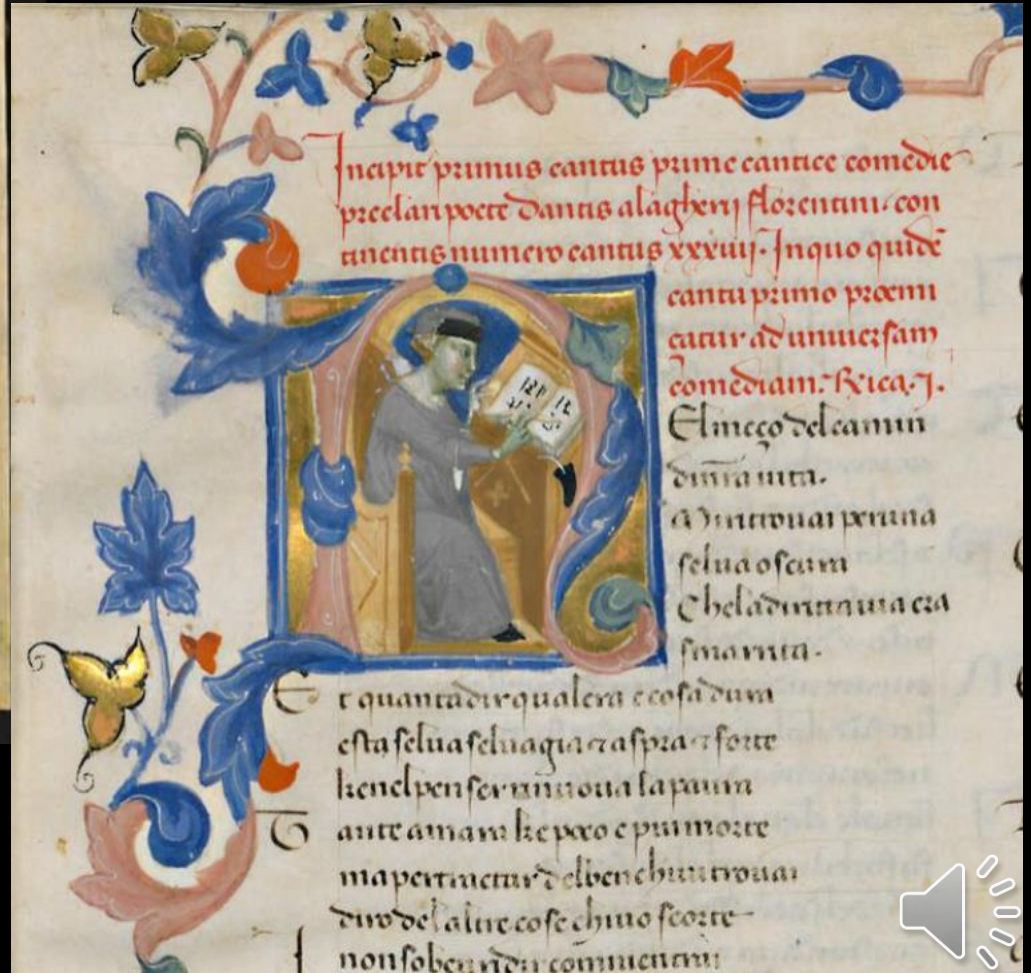 Incipit primus cantus prime cantice comedie
preclari poete dantis alagherij florentini. con
tinentis numero cantus xxxiiij. In quo quidē
cantu primo prœmi
catur ad universam
comediam: Rica. I.
El meço del camin
di nrā vita.
Mi ritrovai per una
selva oscura
Che la diritta via era
smarrita.
Et quanta dir qual era e cosa dura
esta selva selvagia ⁊ aspra ⁊ forte
ke nel penser rinnova la paura
Tante amara ke poco e piu morte
ma per tractar del ben chivi trovai
diro del altre cose chivo scorte
I non so ben ridir